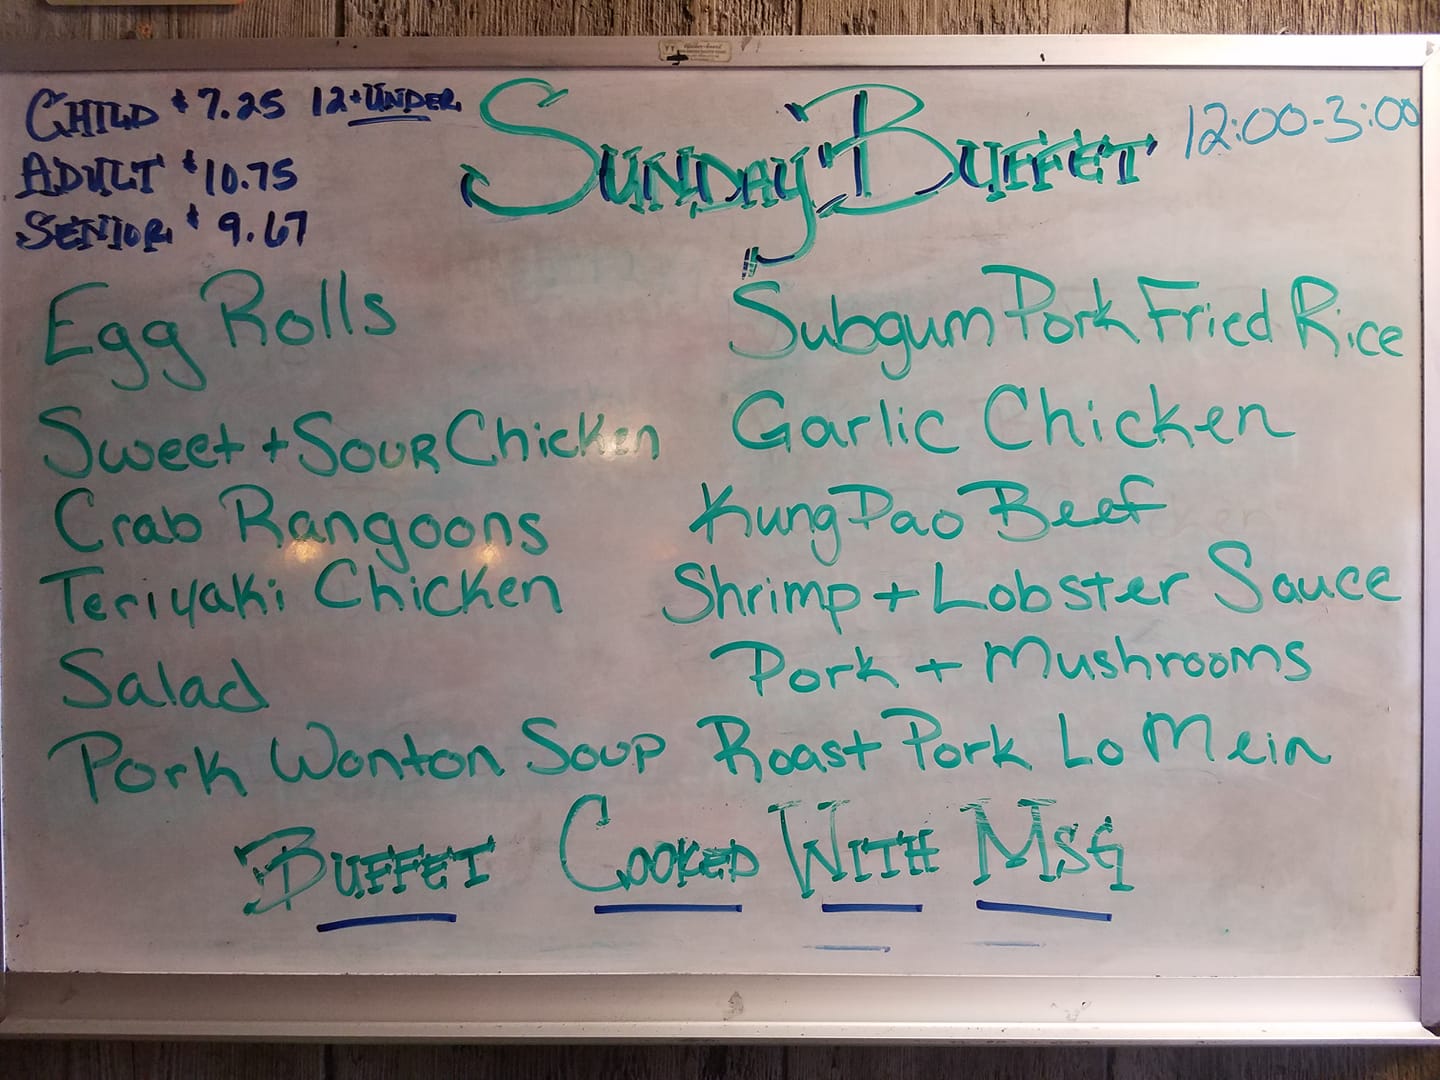 CHILD $7.25 12+UNDER
ADULT $10.75
SENIOR $9.67
SUNDAY BUFFET
12:00-3:00
Egg Rolls
Sweet + SOUR Chicken
Crab Rangoons
Teriyaki Chicken
Salad
Pork Wonton Soup
Subgum Pork Fried Rice
Garlic Chicken
Kung Pao Beef
Shrimp + Lobster Sauce
Pork + Mushrooms
Roast Pork Lo Mein
BUFFET COOKED WITH MSG